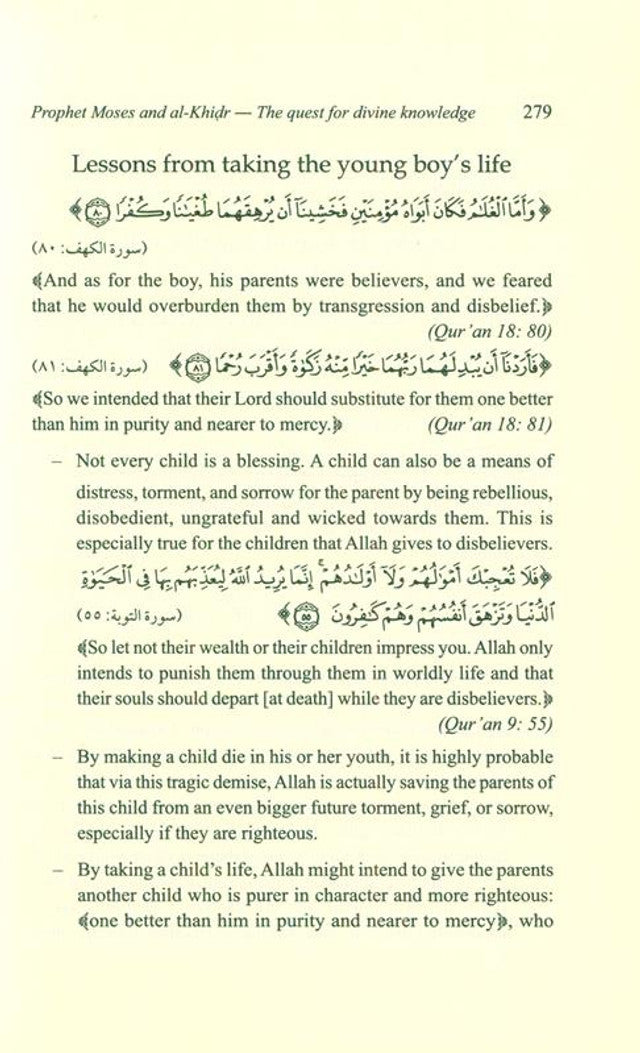 Prophet Moses and al-Khiḍr — The quest for divine knowledge 279
Lessons from taking the young boy's life
﴿ وَأَمَّا ٱلْغُلَـٰمُ فَكَانَ أَبَوَاهُ مُؤْمِنَيْنِ فَخَشِينَآ أَن يُرْهِقَهُمَا طُغْيَـٰنًا وَكُفْرًا ۝٨٠ ﴾
(سورة الكهف: ٨٠)
﴾And as for the boy, his parents were believers, and we feared
that he would overburden them by transgression and disbelief.﴿
(Qur'an 18: 80)
﴿فَأَرَدْنَآ أَن يُبْدِلَهُمَا رَبُّهُمَا خَيْرًا مِّنْهُ زَكَوٰةً وَأَقْرَبَ رُحْمًا ۝٨١﴾ (سورة الكهف: ٨١)
﴾So we intended that their Lord should substitute for them one better
than him in purity and nearer to mercy.﴿ (Qur'an 18: 81)
– Not every child is a blessing. A child can also be a means of
distress, torment, and sorrow for the parent by being rebellious,
disobedient, ungrateful and wicked towards them. This is
especially true for the children that Allah gives to disbelievers.
﴿فَلَا تُعْجِبْكَ أَمْوَٰلُهُمْ وَلَآ أَوْلَـٰدُهُمْ ۚ إِنَّمَا يُرِيدُ ٱللَّهُ لِيُعَذِّبَهُم بِهَا فِى ٱلْحَيَوٰةِ
ٱلدُّنْيَا وَتَزْهَقَ أَنفُسُهُمْ وَهُمْ كَـٰفِرُونَ ۝٥٥ ﴾ (سورة التوبة: ٥٥)
﴾So let not their wealth or their children impress you. Allah only
intends to punish them through them in worldly life and that
their souls should depart [at death] while they are disbelievers.﴿
(Qur'an 9: 55)
– By making a child die in his or her youth, it is highly probable
that via this tragic demise, Allah is actually saving the parents of
this child from an even bigger future torment, grief, or sorrow,
especially if they are righteous.
– By taking a child's life, Allah might intend to give the parents
another child who is purer in character and more righteous:
﴾one better than him in purity and nearer to mercy﴿, who